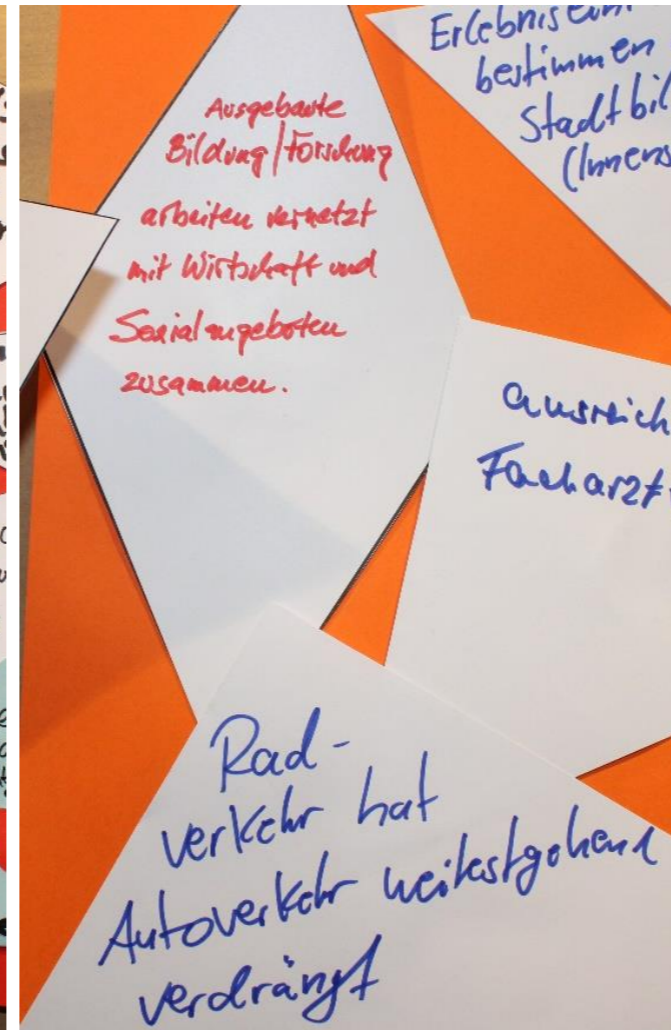 Ausgebaute
Bildung/Forschung
arbeiten vernetzt
mit Wirtschaft und
Sozialangeboten
zusammen.
bestimmen
Stadtbil
(Innens
ausreich
Facharzt
Rad-
verkehr hat
Autoverkehr weitestgehend
verdrängt